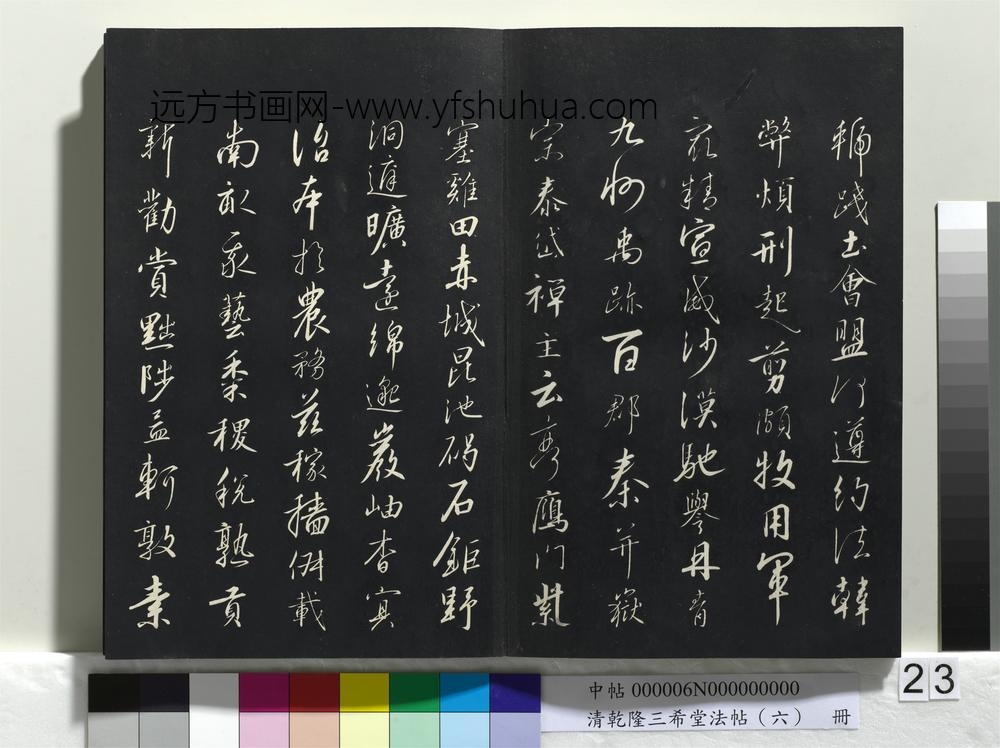 远方书画网-www.yfshuhua.com
虢踐土會盟何遵約法韓
弊煩刑起剪頗牧用軍
最精宣威沙漠馳譽丹青
九州禹跡百郡秦并嶽
宗泰岱禪主云亭鴈門紫
塞雞田赤城昆池碣石鉅野
洞庭曠遠綿邈巖岫杳冥
治本於農務茲稼穡俶載
南畝我藝黍稷稅熟貢
新勸賞黜陟孟軻敦素
中帖 000006N000000000
清乾隆三希堂法帖（六） 冊
23